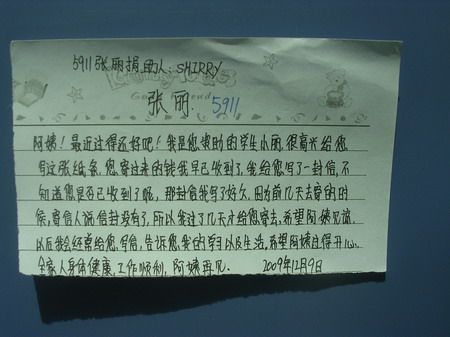 5911张丽捐助人：SHIRRY
张丽 5911
阿姨！最近过得还好吧！我是您资助的学生小丽，很高兴给您
写这张纸条，您寄过来的钱我早已收到了，我给您写了一封信，不
知道您是否已收到了呢，那封信我写了好久，因为前几天去寄的时
候，寄信人说信封没有了，所以我过了几天才给您寄去，希望阿姨见谅，
以后我会经常给您写信，告诉您，我的学习以及生活，希望阿姨过得开心。
全家人身体健康，工作顺利，阿姨再见。 2009年12月9日